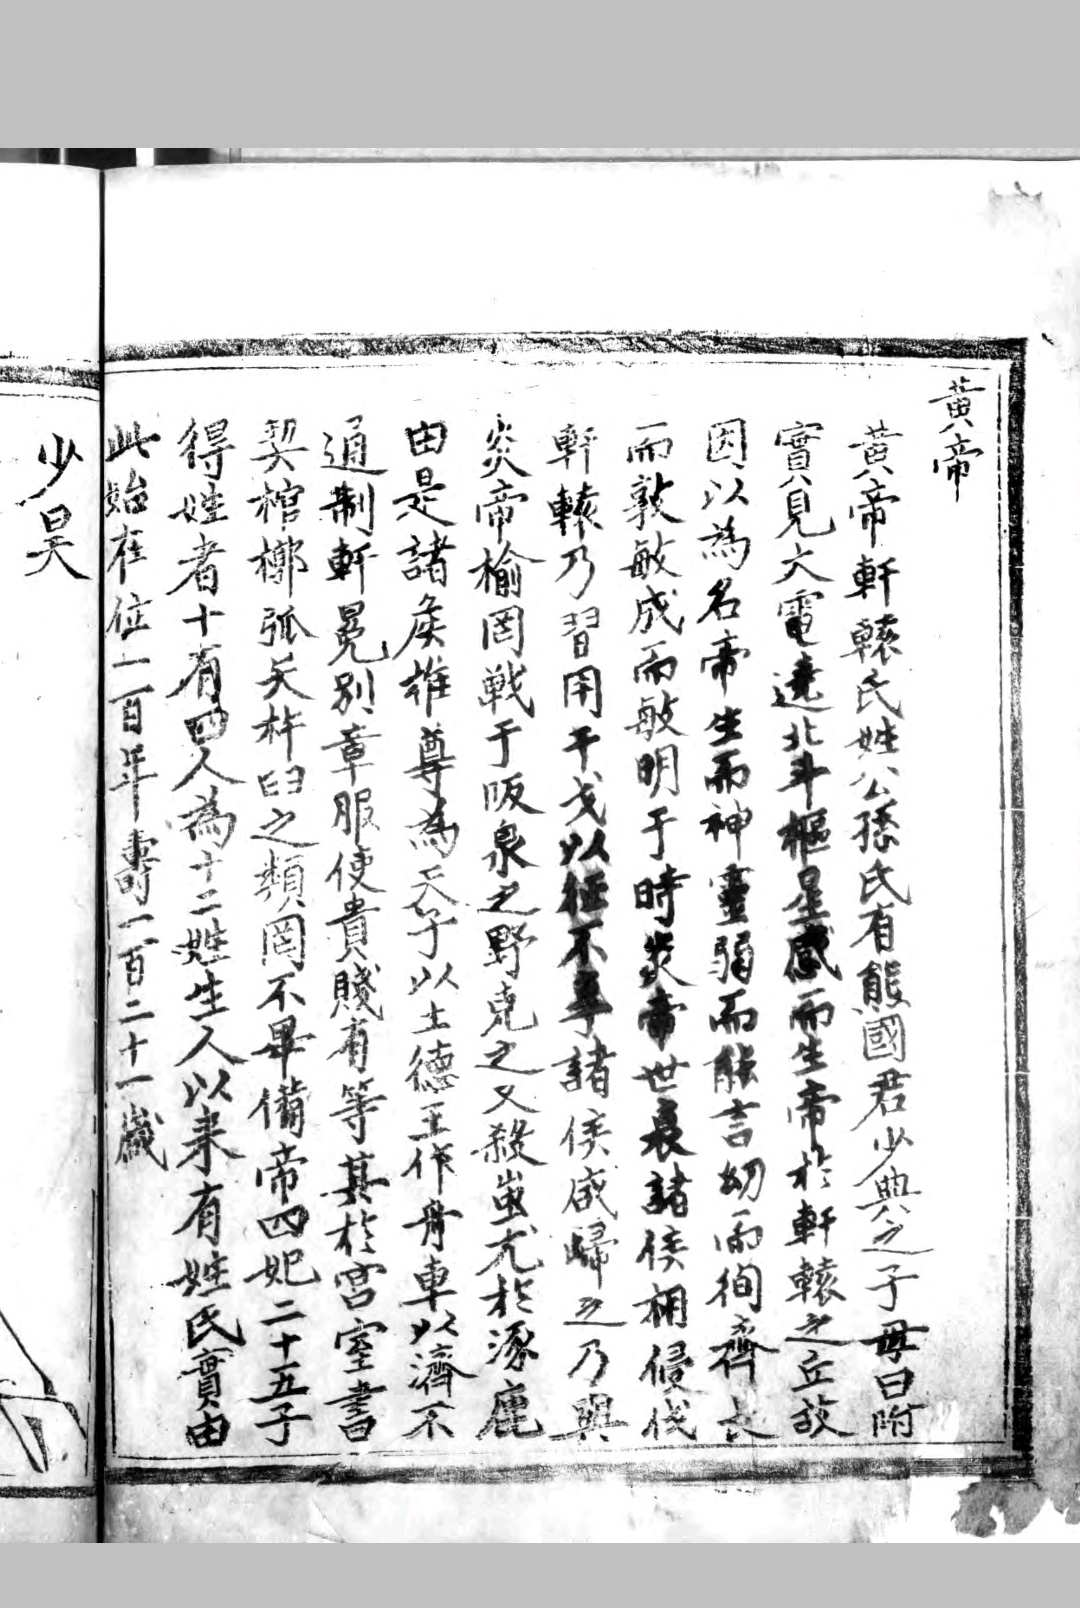 黃帝
黃帝軒轅氏姓公孫氏有熊國君少典之子母曰附
實見大電遶北斗樞星感而生帝於軒轅之丘故
因以為名帝生而神靈弱而能言幼而徇齊長
而敦敏成而敏明于時炎帝世衰諸侯相侵伐
軒轅乃習用干戈以征不享諸侯咸歸之乃與
炎帝榆罔戰于阪泉之野克之又殺蚩尤於涿鹿
由是諸侯推尊為天子以土德王作舟車以濟不
通制軒冕別章服使貴賤有等其於宮室書
契棺槨弧矢杵臼之類罔不畢備帝四妃二十五子
得姓者十有四人為十二姓生人以来有姓氏實由
此始在位一百年壽一百二十一歲
少昊